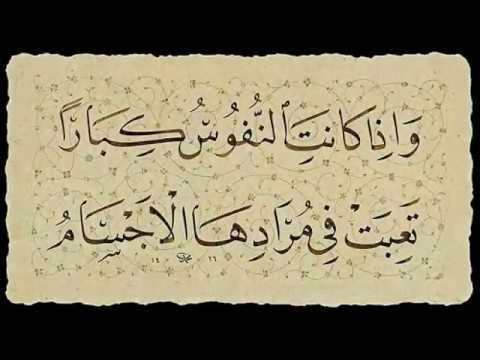 وَاِذَا كَانَتِ ٱلنُّفُوسُ كِبَارًا
تَعِبَتْ فِي مُرَادِهَا الْاَجْسَامُ